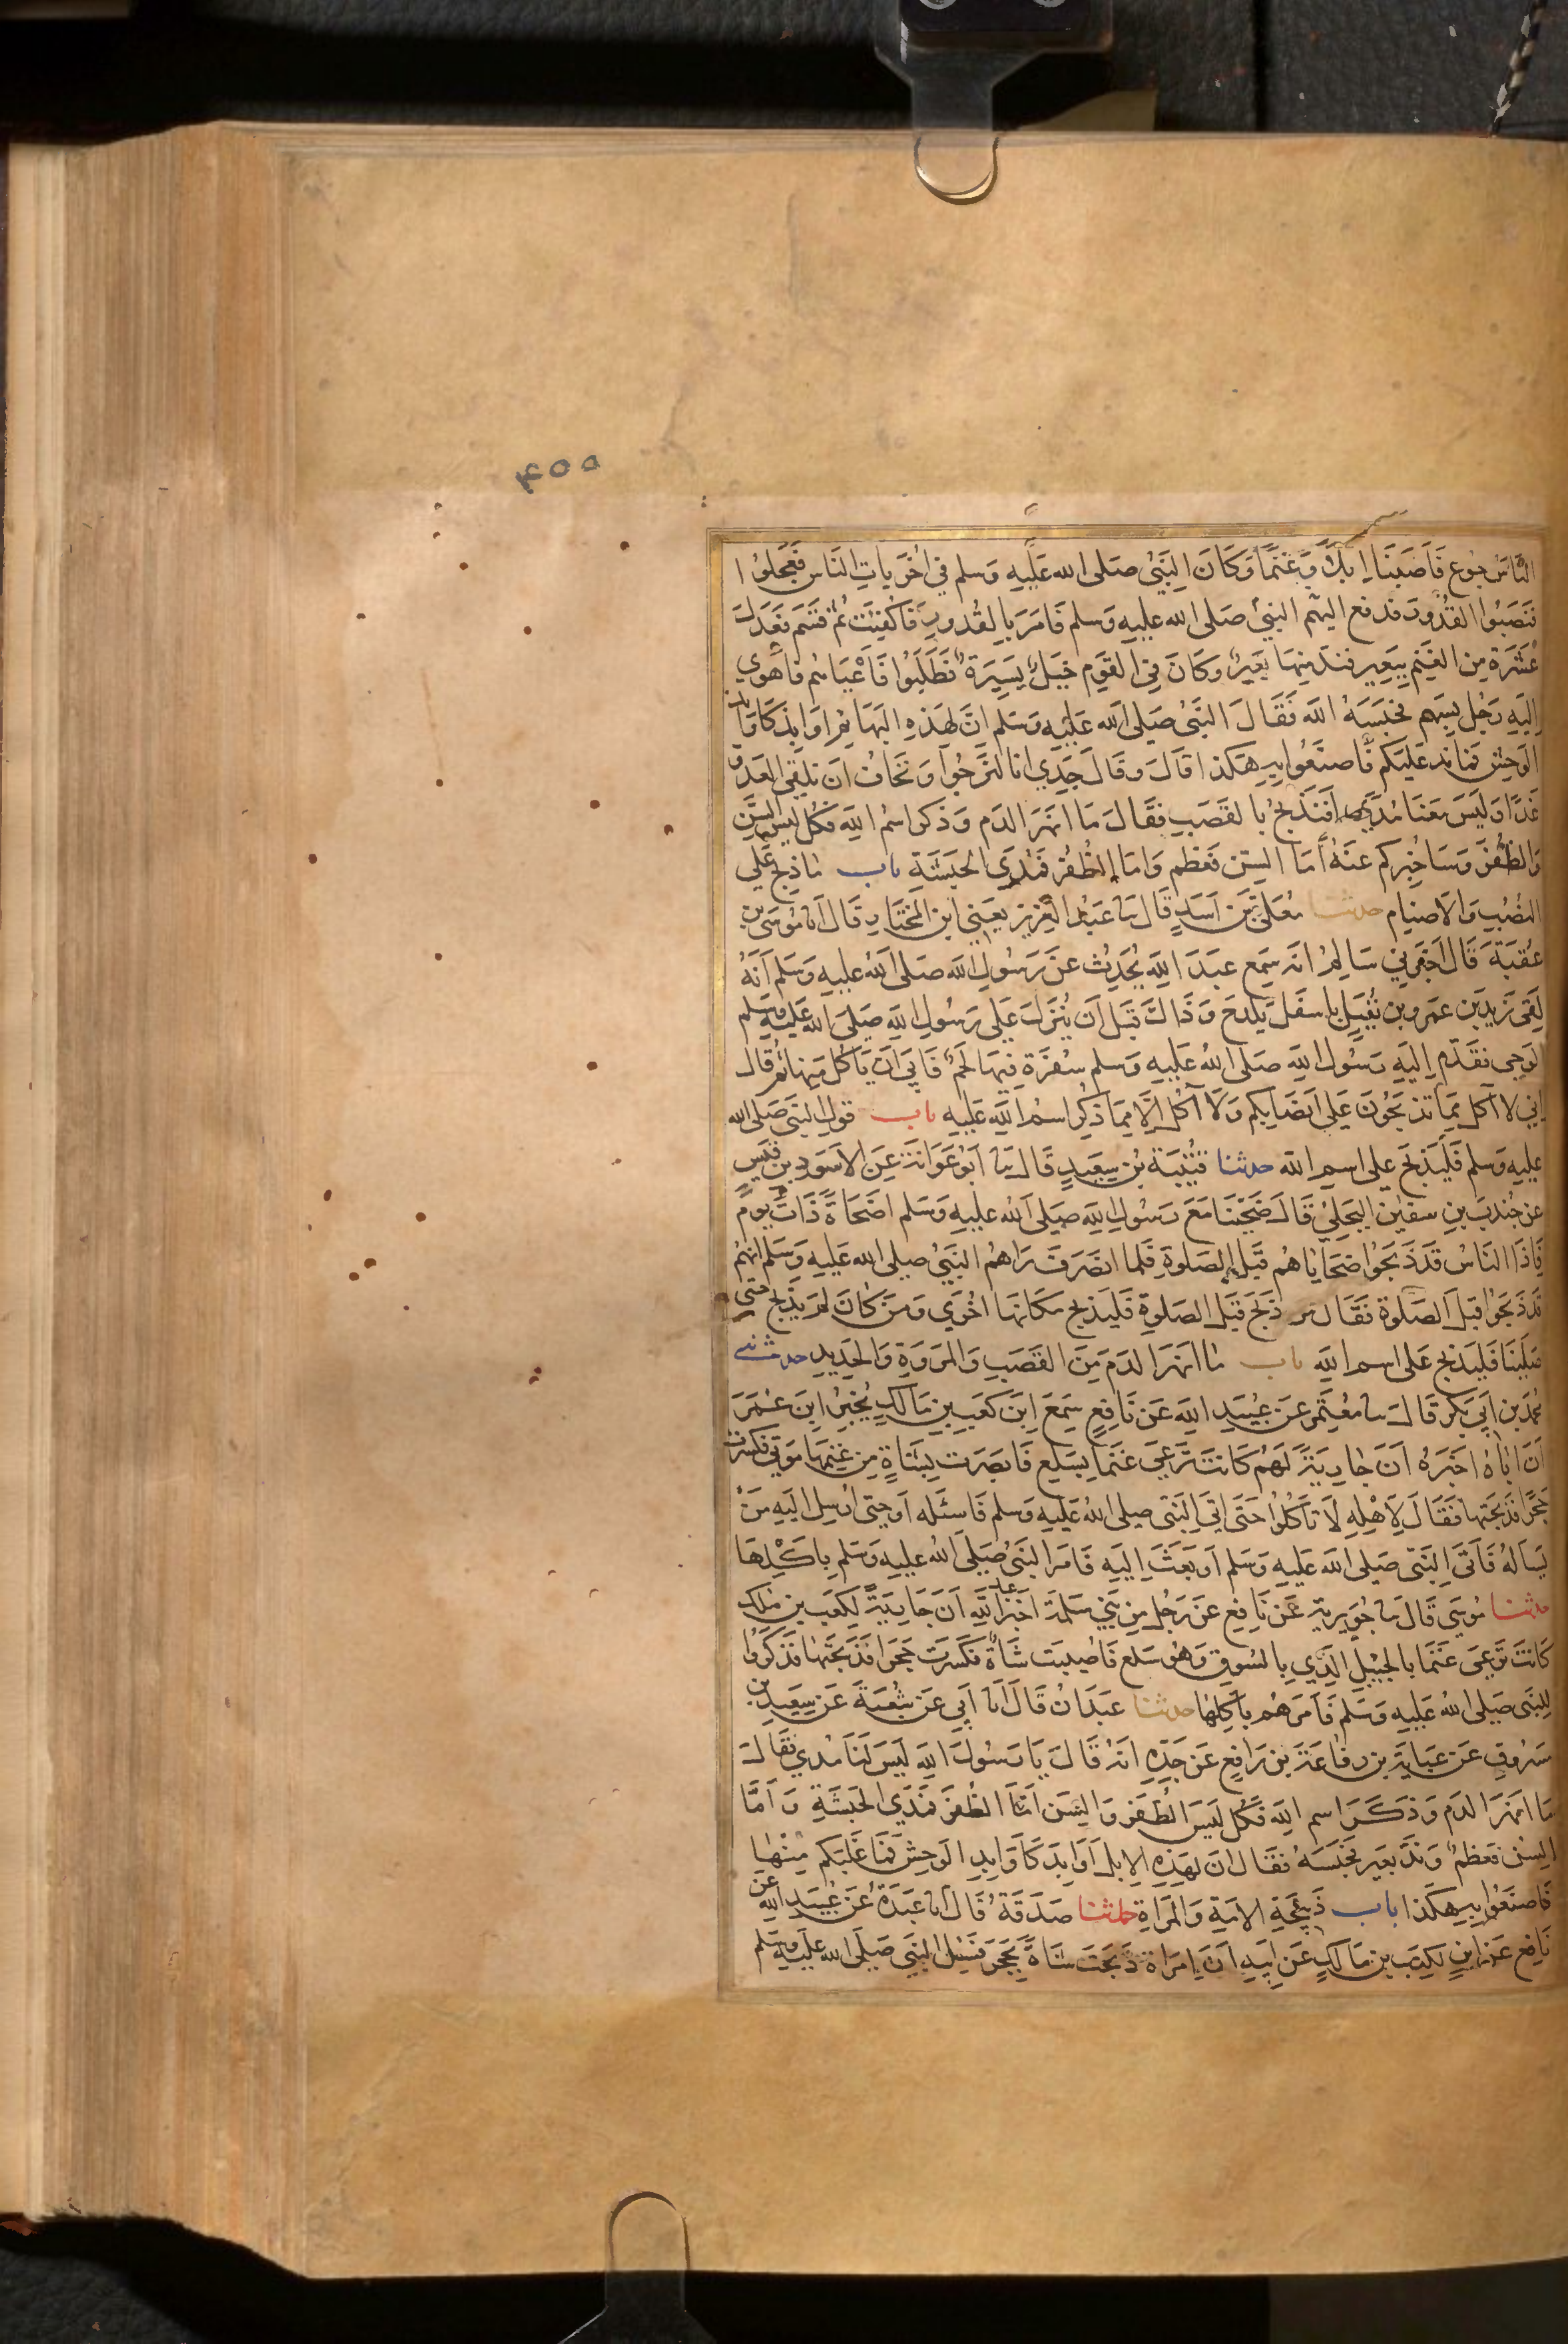 ٤٥٥
النَّاسَ جوع فَاَصَبْنَا اِبِلًا وَّغَنَمًا وَكَانَ النَّبِيُّ صلى الله عَلَيْهِ وَسلم في اُخْرَيَاتِ النَّاسِ فَعَجِلُوا
فَنَصَبُوا القُدُورَ فدفع اليهم النبيُّ صَلى الله عليه وَسلم فَامَرَ بِالقُدورِ فَاكْفِئَتْ ثُمَّ قَسَمَ فَعَدَلَ
عَشَرَة مِنَ الغَنَمِ بِبَعِيرٍ فندّ مِنهَا بَعِيرٌ وكَانَ فِي القَومِ خَيلٌ يَسِيرَةٌ فَطَلَبُوا فَاَعْيَاهُم فاهوى
اِلَيْهِ رَجُل بِسَهم فحَبَسَهُ اللّه فَقَالَ النَّبيُّ صَلى الله عَلَيْهِ وَسَلم انَّ لهَذِهِ البَهَائِمِ اوَابِدَ كَاوَابِدِ
الوَحشِ فمَا ندّ عَلَيكم فَاصنَعُوا بِهِ هكَذا قَالَ وقَالَ جَدِّي انا لنَرجُوا وَنَخَافُ ان نلقى العَدوّ
غَدًا وَلَيسَ مَعَنَا مُدًى اَفَنَذبحُ بِالقَصَبِ فقَالَ مَا انهَرَ الدم وَذكر اسْم الله فَكُل ليس السِّن
وَالظُّفُرَ وَسَاخبِركم عَنْهُ اَمَا السِّن فَعَظم وَامَا الظُّفُر فمُدَى الحَبَشَةِ باب مَا ذبح عَلى
النصُبِ وَالاصنَام حدثنا مُعَلَّى بْن اَسَدٍ قَالَ نا عَبدُ العَزِيزِ يَعنِي ابن المُختَارِ قَالَ انا مُوسَى بن
عُقبَة قَالَ اَخبَرَنِي سَالِمٌ انه سَمِع عَبدَ الله يُحَدِّث عَنْ رَسُولِ الله صَلى الله عليه وَسَلم اَنَّهُ
لَقِىَ زَيدَ بن عَمرو بن نُفَيلٍ بِاسفَل بَلدَح وَذَاكَ قَبلَ اَن يُنزَلَ عَلى رَسُولِ الله صَلى الله عَلَيهِ وسلم
الوَحِى فَقَدَّم اِلَيهِ رَسُول الله صَلى الله عَلَيهِ وَسلم سُفرَة فيها لَحمٌ فَابَى اَن يَاكُل مِنها ثم قَال
اِنِّي لا آكل مِمَّا تَذبَحُونَ عَلى اَنصَابِكم وَلَا آكل اِلَّا مِمَّا ذُكِرَ اسْمُ الله عَليه باب قولِ النَّبى صَلى الله
عليه وَسلم فَليَذبَح على اسمِ الله حدثنا قُتَيبَة بْن سَعِيدٍ قَالَ نا اَبُو عَوَانَة عَنِ الاسَودِ بن قيسٍ
عن جُندَب بنِ سفيٰن البَجَلِيّ قَالَ ضَحَّينَا مَعَ رَسُولِ الله صَلى الله عليه وسَلم اضحَاةً ذَاتَ يَوم
فَاِذَا النَّاسُ قَد ذَبَحُوا ضحَايَاهُم قَبلَ الصَلوٰةِ فَلما انصَرَفَ رَاهُم النَّبيُّ صلى الله عَليه وسَلم انَّهُم
قَد ذَبَحُوا قبلَ الصَّلوة فَقَالَ من ذَبَحَ قَبلَ الصلوةِ فَليَذبح مكَانَها اُخْرَى وَمَن كَانَ لم يَذبح حتى
صَلينَا فَليَذبح عَلى اسم الله باب مَا انهَرَ الدَم مِنَ القَصَبِ وَالمروَةِ وَالحَدِيد حدثني
محمد بن اَبى بَكر قَالَ نا مُعتَمِر عن عُبَيدِ الله عَن نَافِعٍ سَمِعَ ابنَ كَعبِ بنِ مَالكٍ يُخبِرُ ابنَ عُمَرَ
اَنَّ اَبَاهُ اخبَرَهُ اَنَّ جَارِيَةً لَهُم كَانَت تَرعىَ غَنَمًا بِسَلعٍ فَابصَرَت بِشَاةٍ مِن غَنَمِهَا مَوتى فكسرت
حَجَرًا فذَبَحَتها فَقَالَ لِاَهلِهِ لَا تَاكُلُوا حَتَّى اٰتِىَ النَّبى صلى الله عَلَيهِ وسَلم فَاسئَله اَو حتى اُرسِل اليهِ مَن
يَسالهُ فَاتَى النَّبى صَلى الله عَليه وَسَلم اَو بَعَثَ اِلَيهِ فَامَر النَّبىُّ صَلى الله عليه وَسَلم بِاَكلِهَا
حدثنا مُوسَى قَالَ نا جُوَيرِية عَن نَافِع عَن رَجُل مِن بَنى سَلمَة اَخبَرَ عبدَ الله اَنَّ جَارِيَةً لِكَعبِ بن مٰلك
كَانَت تَرعىَ غَنَمًا بِالجُبَيلِ الَّذِي بِالسُوقِ وَهُوَ سَلع فَاصِيبَت شَاةٌ فكَسَرَت حَجَرا فذَبَحَتهَا فَذكَرُوا
لِلنَّبى صَلى الله عَلَيهِ وَسَلم فَامَرَهُم بِاَكلِهَا حدثنا عَبدَانُ قَالَ انا اَبِى عَن شُعبَةَ عَن سَعِيدِ بن
مَسرُوقٍ عَن عَبَايَة بن رِفَاعَة بن رَافِعٍ عَن جَدِّهِ اَنّهُ قَالَ يَا رَسُولَ الله لَيسَ لَنَا مُدى فقَالَ
مَا انهَرَ الدم وَذكَرَ اسم الله فَكُل لَيسَ الظُفُر وَالسِن اَمَّا الظُفُر فَمُدَى الحَبَشَةِ وَاَمَّا
السِّن فَعَظمٌ وَنَدَّ بعَير فَحَبَسَهُ فَقَالَ انَّ لِهَذِهِ الاِبِلِ اَوَابِدَ كَاَوَابِدِ الوَحشِ فَمَا غَلَبَكم مِنْهَا
فَاصنَعُوا بِهِ هكَذا باب ذَبِيحَةِ الامَةِ وَالمَراَةِ حدثنا صَدَقَةُ قَالَ انا عَبدَةُ عَن عُبَيدِ الله عَن
نَافِع عَن ابنٍ لِكَعبِ بن مَالكٍ عَن اَبِيهِ اَنَّ امرَاة ذَبَحَت شَاةً بِحَجَرٍ فَسُئِلَ النَّبى صَلى الله عَلَيهِ وسَلم